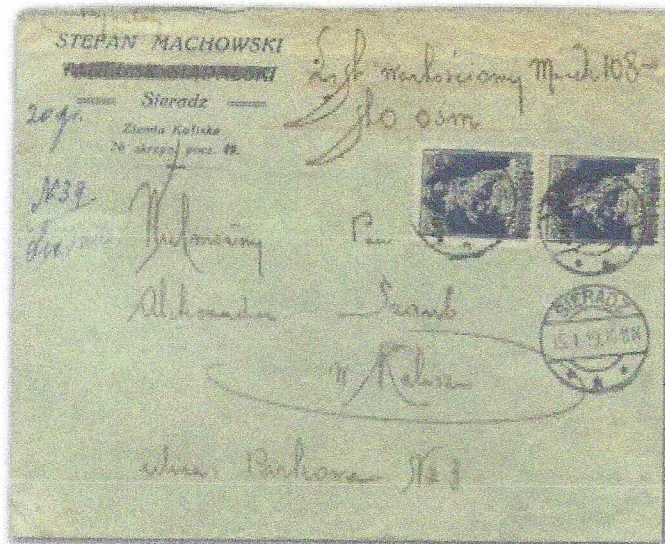 STEFAN MACHOWSKI
Sieradz
Ziemia Kaliska
skrz. pocz. 19.
List wartościowy Marek 108-
sto ośm
20 gr.
N 39
Wielmożny Pan
Aleksander Szaub
w Kaliszu
ulica Parkowa No 3
SIERADZ